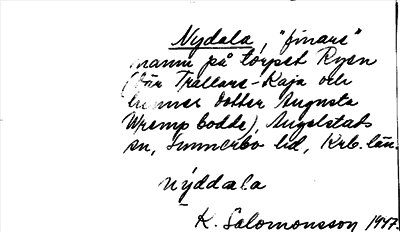 Nydala, "finare"
namn på torpet Rysn
(där Trallars-Kaja och
hennes dotter Augusta
Wremp bodde), Angelstads
sn, Sunnerbo hd, Krb. län.
nýddala
K. Salomonsson 1947.